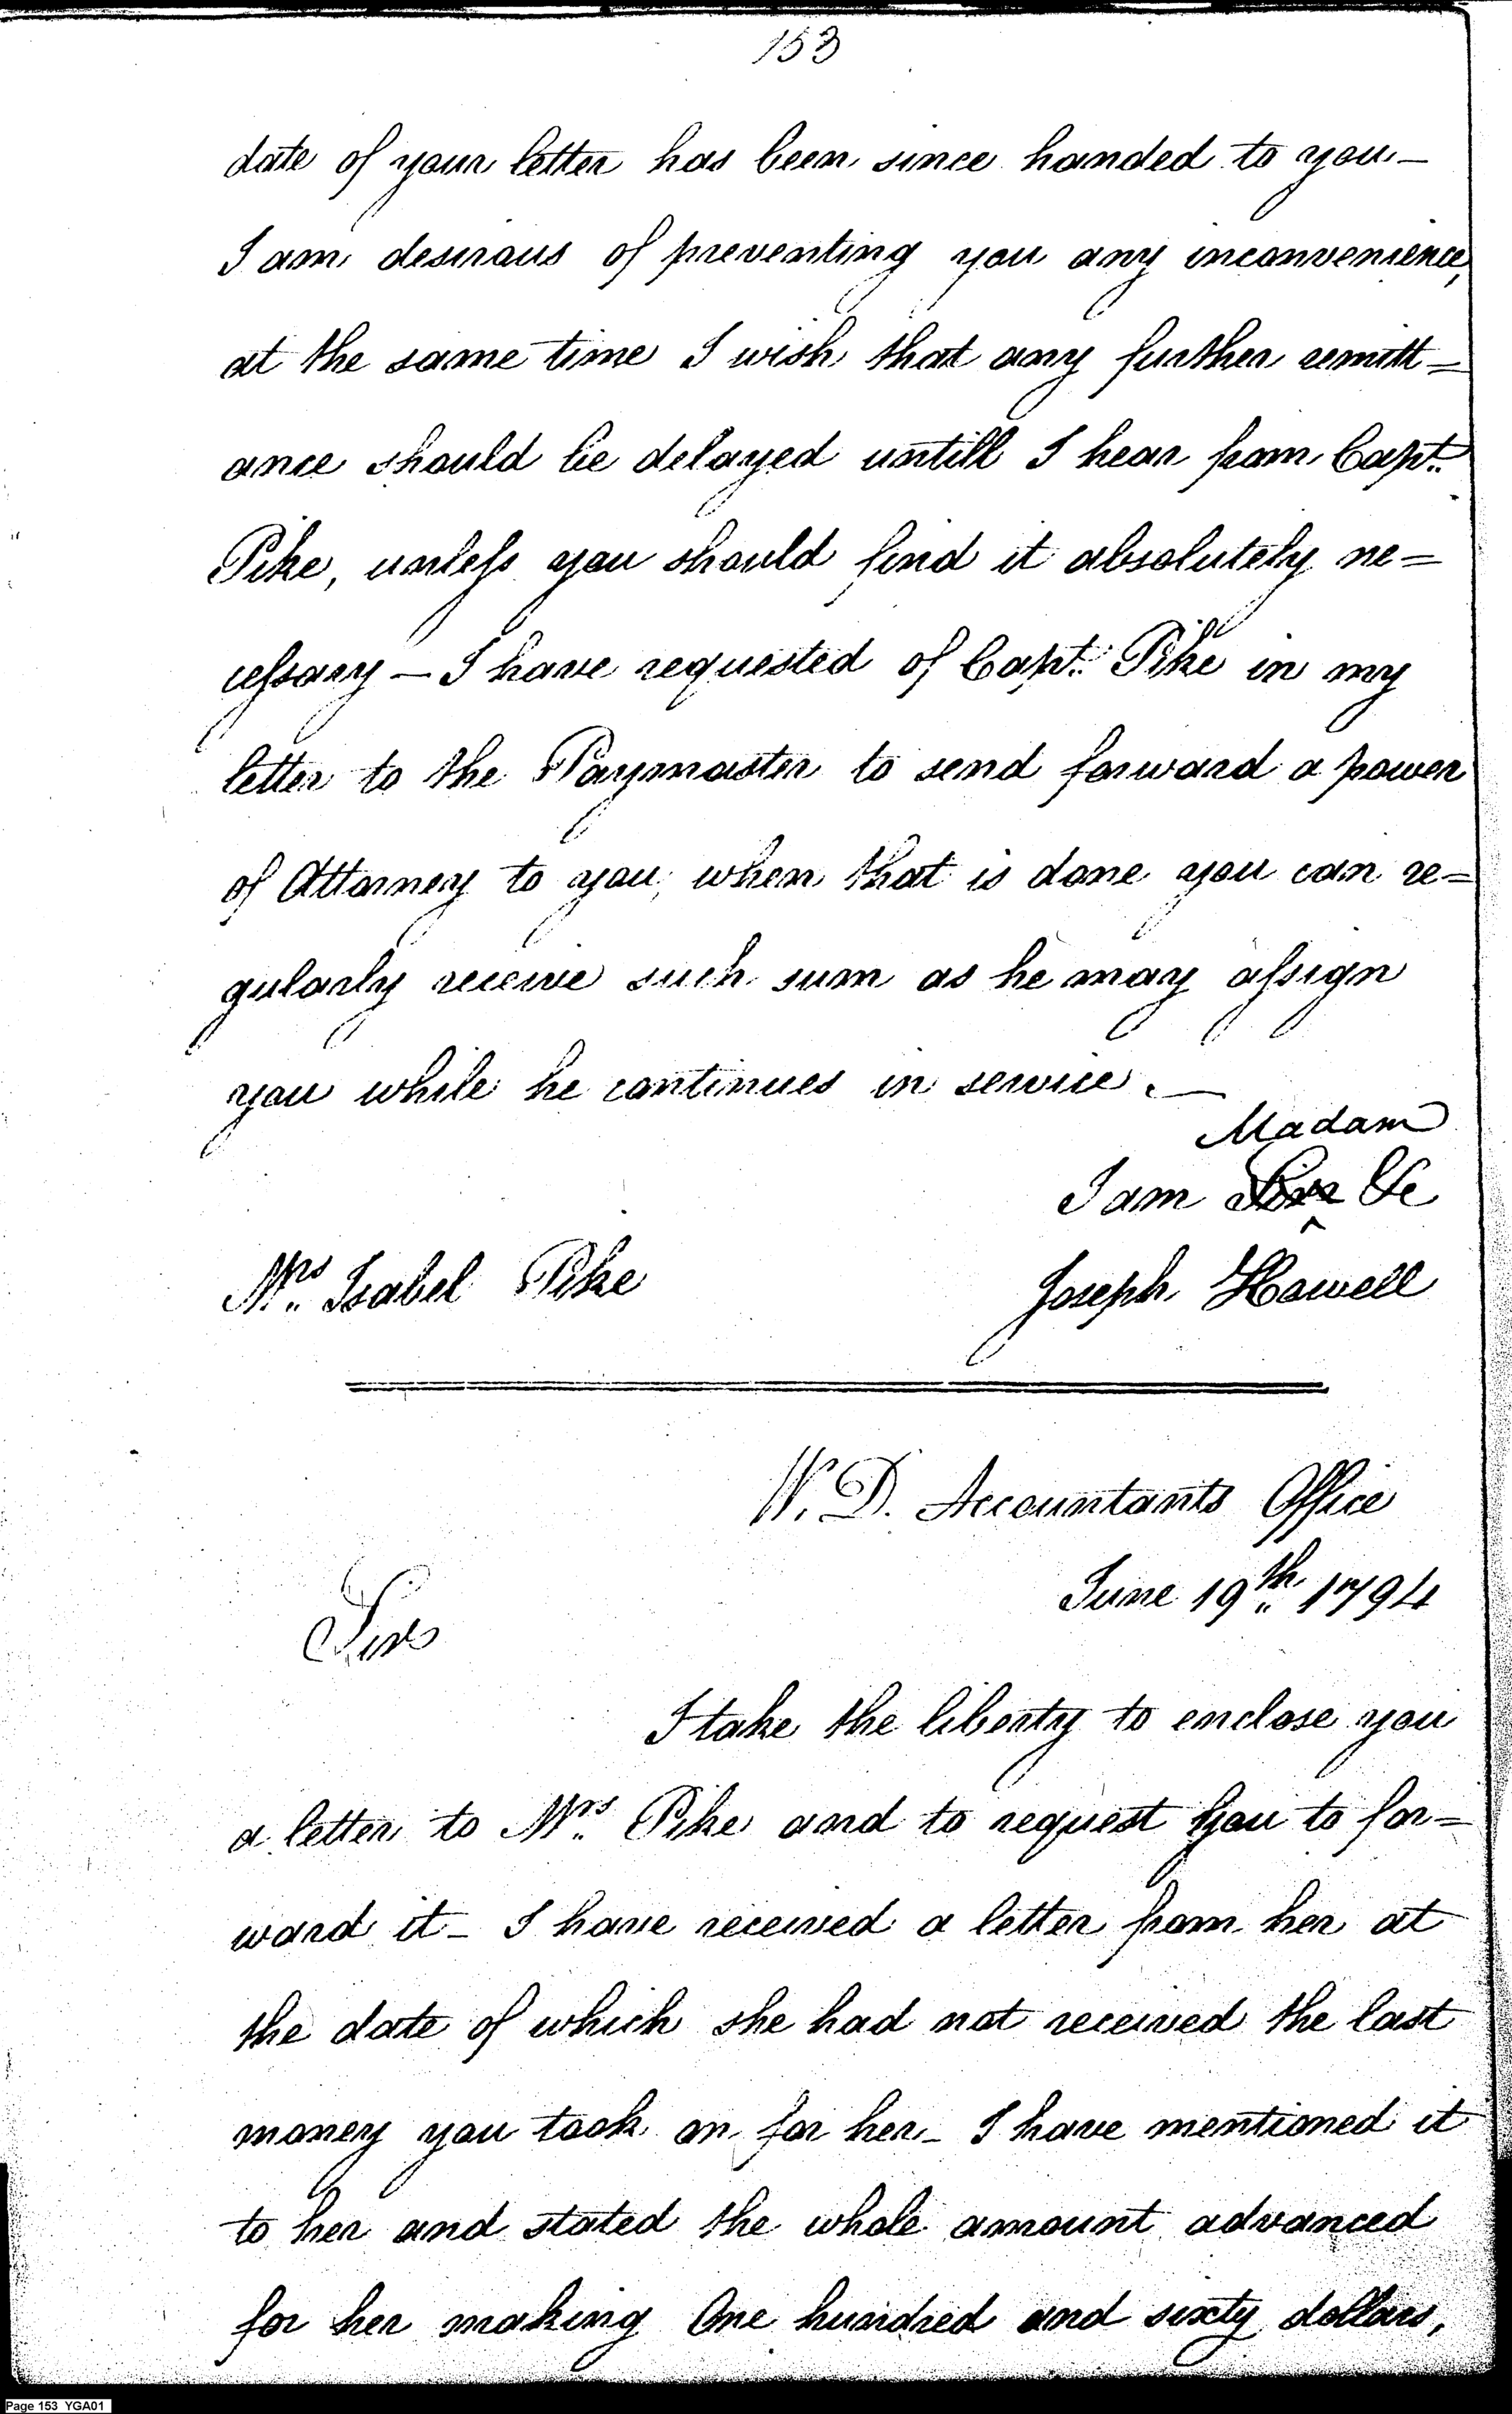 153
date of your letter has been since handed to you —
I am desirous of preventing you any inconvenience,
at the same time I wish that any further remitt=
ance should be delayed untill I hear from Capt.
Pike, unless you should find it absolutely ne=
cessary — I have requested of Capt. Pike in my
letter to the Paymaster to send forward a power
of Attorney to you, when that is done you can re=
gularly receive such sum as he may assign
you while he continues in service. —
Madam
I am Sir &c
Mrs. Isabel Pike Joseph Howell
W. D. Accountants Office
June 19th. 1794
Sir
I take the liberty to enclose you
a letter to Mrs. Pike and to request you to for=
ward it — I have received a letter from her at
the date of which she had not received the last
money you took on for her — I have mentioned it
to her and stated the whole amount advanced
for her making One hundred and sixty dollars,
Page 153 YGA01